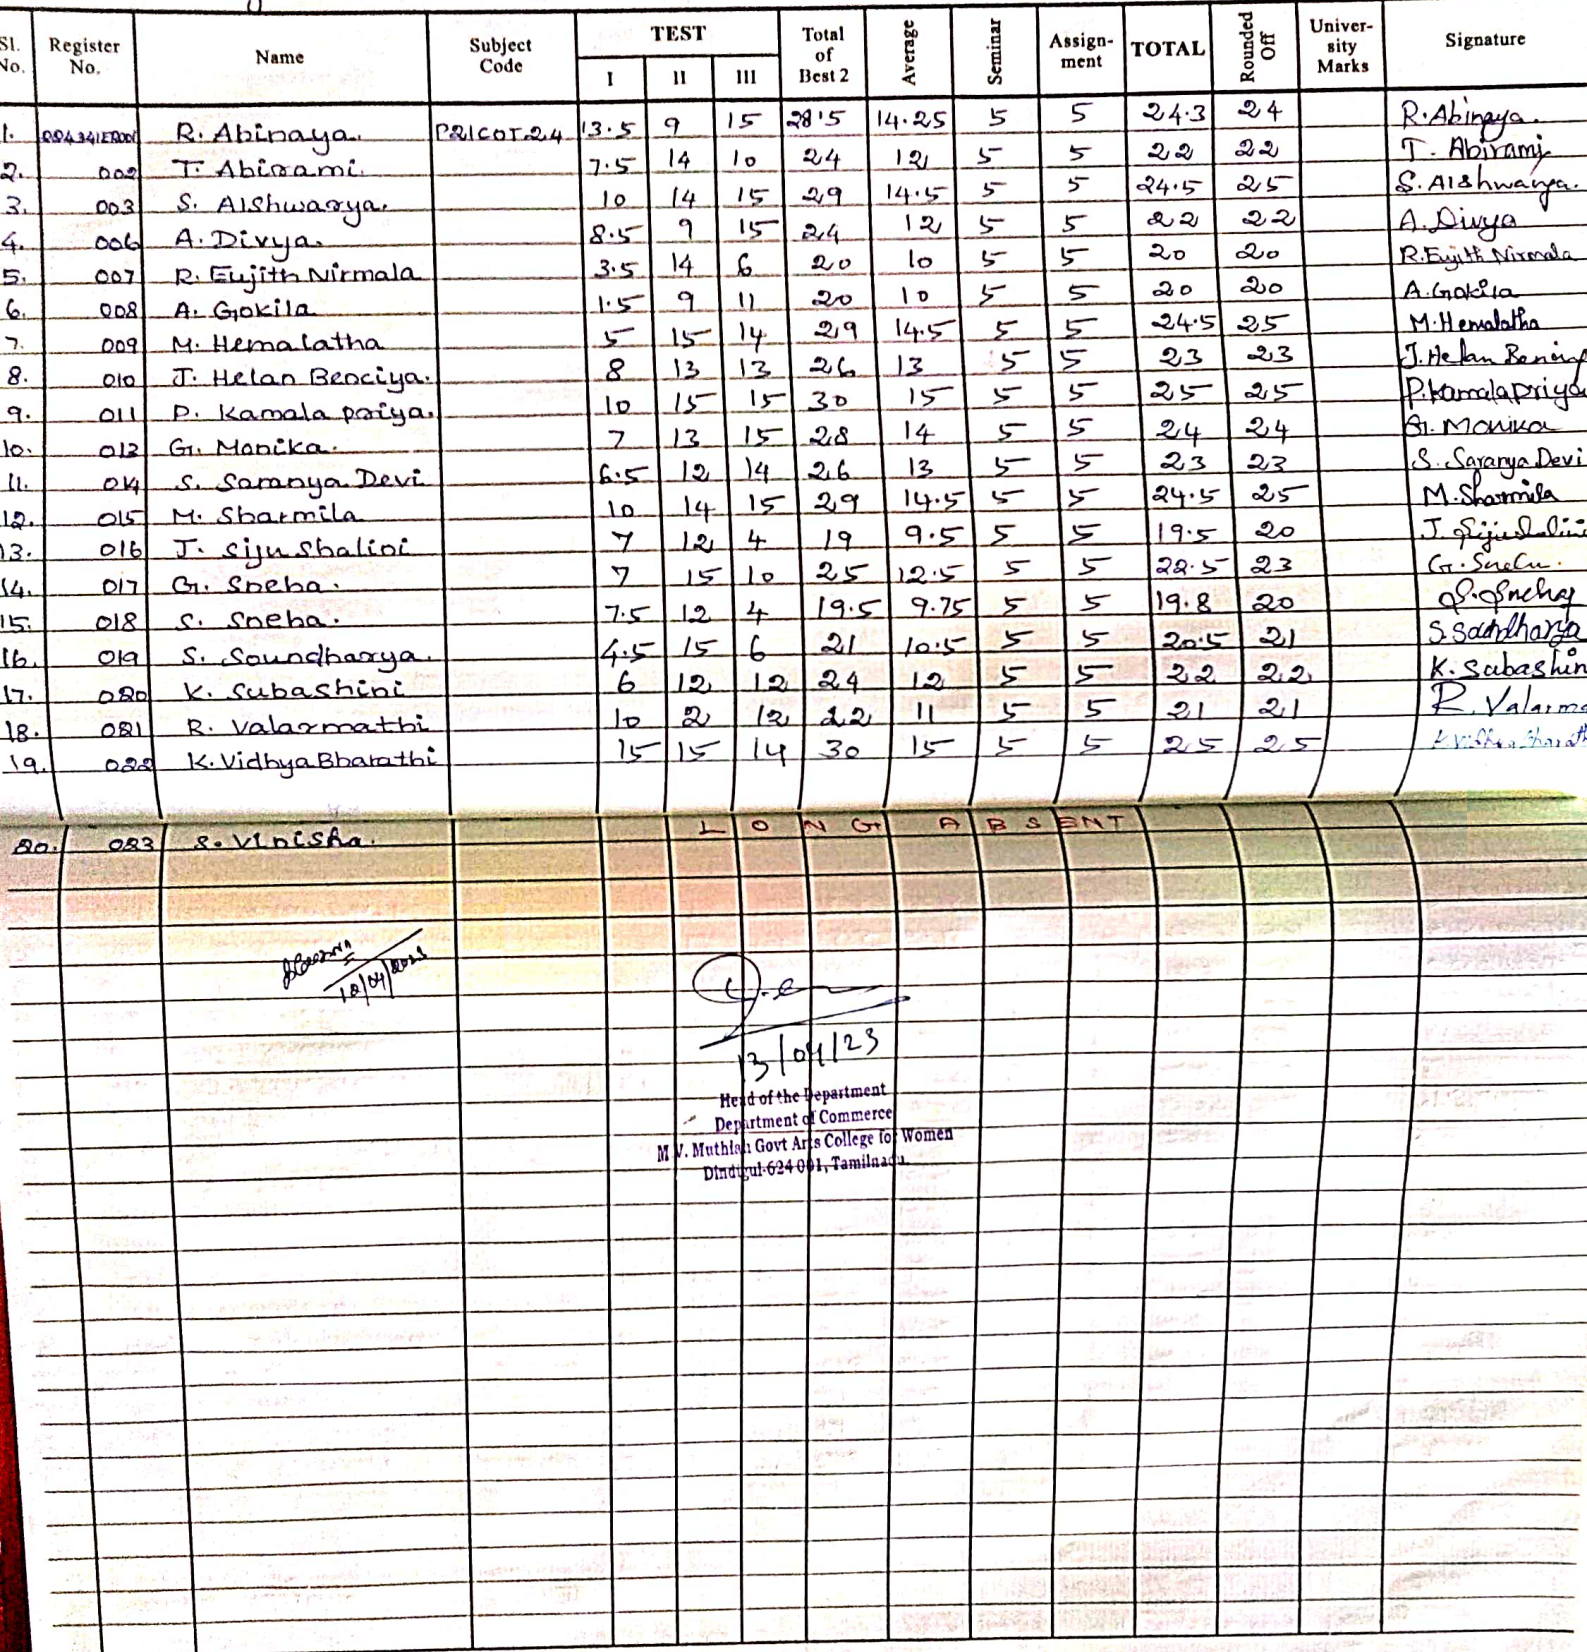 Sl. No. Register No. Name Subject Code TEST I II III Total of Best 2 Average Seminar Assign-ment TOTAL Rounded Off Univer-sity Marks Signature
1. R. Abinaya. P21COT24 13.5 9 15 28.5 14.25 5 5 24.3 24 R. Abinaya.
2. 002 T. Abirami. 7.5 14 10 24 12 5 5 22 22 T. Abirami
3. 003 S. AIShwarya. 10 14 15 29 14.5 5 5 24.5 25 S. AIShwarya.
4. 006 A. Divya. 8.5 9 15 24 12 5 5 22 22 A. Divya
5. 007 R. Eujith Nirmala 3.5 14 6 20 10 5 5 20 20 R. Eujith Nirmala
6. 008 A. Gokila 1.5 9 11 20 10 5 5 20 20 A. Gokila
7. 009 M. Hemalatha 5 15 14 29 14.5 5 5 24.5 25 M. Hemalatha
8. 010 J. Helan Benciya. 8 13 13 26 13 5 5 23 23 J. Helan
9. 011 P. Kamala priya. 10 15 15 30 15 5 5 25 25 P. Kamalapriya
10. 013 G. Monika. 7 13 15 28 14 5 5 24 24 G. Monika
11. 014 S. Saranya Devi 6.5 12 14 26 13 5 5 23 23 S. Saranya Devi
12. 015 M. Sharmila 10 14 15 29 14.5 5 5 24.5 25 M. Sharmila
13. 016 J. Siju Shalini 7 12 4 19 9.5 5 5 19.5 20 J. Siju Shalini
14. 017 G. Sneha. 7 15 10 25 12.5 5 5 22.5 23 G. Sneha.
15. 018 S. Sneha. 7.5 12 4 19.5 9.75 5 5 19.8 20 S. Sneha
16. 019 S. Soundharya. 4.5 15 6 21 10.5 5 5 20.5 21 S. Soundharya
17. 020 K. Subashini 6 12 12 24 12 5 5 22 22 K. Subashin
18. 021 R. Valarmathi 10 2 12 22 11 5 5 21 21 R. Valarma
19. 022 K. Vidhya Bharathi 15 15 14 30 15 5 5 25 25 K. Vidhya Bharath
20. 023 S. Vinisha. LONG ABSENT
13/04/23
Head of the Department
Department of Commerce
M.V. Muthiah Govt Arts College for Women
Dindigul-624 001, Tamilnadu.